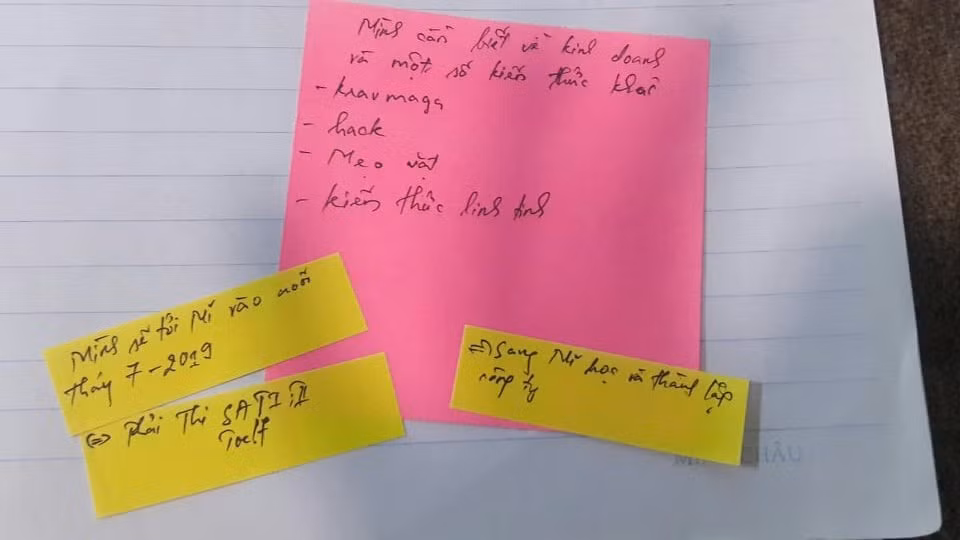 Mình cần biết về kinh doanh
và một số kiến thức khác
- kravmaga
- hack
- Mẹo vặt
- kiến thức linh tinh
Mình sẽ tới Mĩ vào cuối
tháy 7-2019
⇔ Phải Thi SAT I; II
Toelf
⇒ Sang Mĩ học và thành lập
công ty
CHÂU